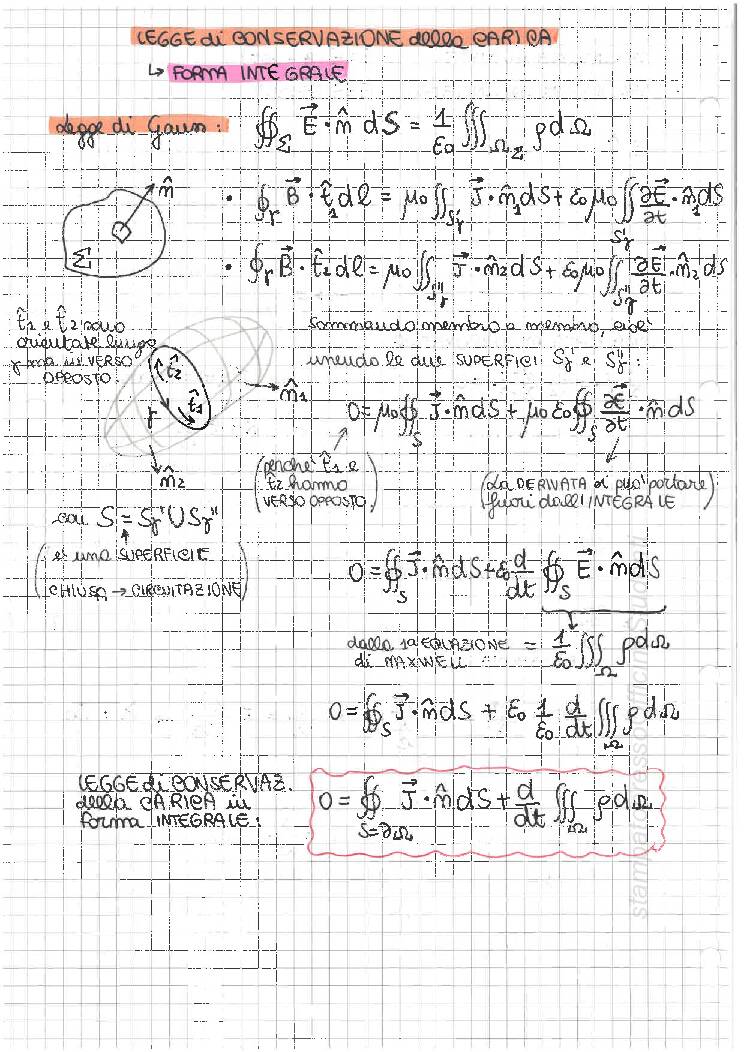 LEGGE di CONSERVAZIONE della CARICA
↳ FORMA INTEGRALE
Legge di Gauss: ∯_Σ E⃗ · n̂ dS = 1/ε₀ ∭_Ω_Σ ρ dΩ
n̂
Σ
• ∮_γ B⃗ · t̂₁ dl = μ₀ ∬_Sγ' J⃗ · n̂₁ dS + ε₀ μ₀ ∬_Sγ' ∂E⃗/∂t · n̂₁ dS
• ∮_γ B⃗ · t̂₂ dl = μ₀ ∬_Sγ'' J⃗ · n̂₂ dS + ε₀ μ₀ ∬_Sγ'' ∂E⃗/∂t · n̂₂ dS
t̂₁ e t̂₂ sono
orientate lungo
γ ma in VERSO
OPPOSTO.
t̂₂
t̂₁
γ
n̂₁
n̂₂
sommando membro a membro, cioè
unendo le due SUPERFICI Sγ' e Sγ'':
0 = μ₀ ∯_S J⃗ · n̂ dS + μ₀ ε₀ ∯_S ∂E⃗/∂t · n̂ dS
(perché t̂₁ e
t̂₂ hanno
VERSO OPPOSTO)
(La DERIVATA si può portare
fuori dall'INTEGRALE)
con S = Sγ' ∪ Sγ''
(è una SUPERFICIE
CHIUSA → CIRCUITAZIONE)
0 = ∯_S J⃗ · n̂ dS + ε₀ d/dt ∯_S E⃗ · n̂ dS
dalla 1ª EQUAZIONE
di MAXWELL
= 1/ε₀ ∭_Ω ρ dΩ
0 = ∯_S J⃗ · n̂ dS + ε₀ 1/ε₀ d/dt ∭_Ω ρ dΩ
LEGGE di CONSERVAZ.
della CARICA in
forma INTEGRALE:
0 = ∯_S=∂Ω J⃗ · n̂ dS + d/dt ∭_Ω ρ dΩ